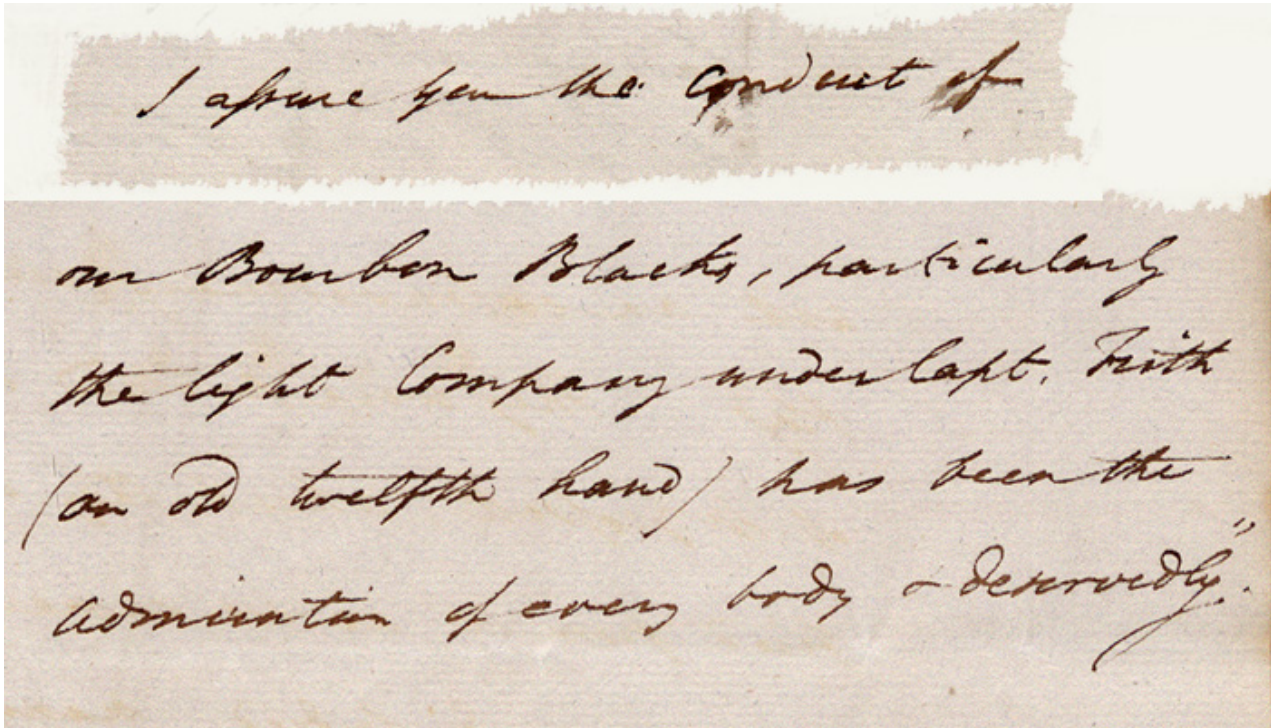 I assure you the conduct of
our Bourbon Blacks, particularly
the light Company under Capt. Frith
(an old twelfth hand) has been the
admiration of every body & deservedly."